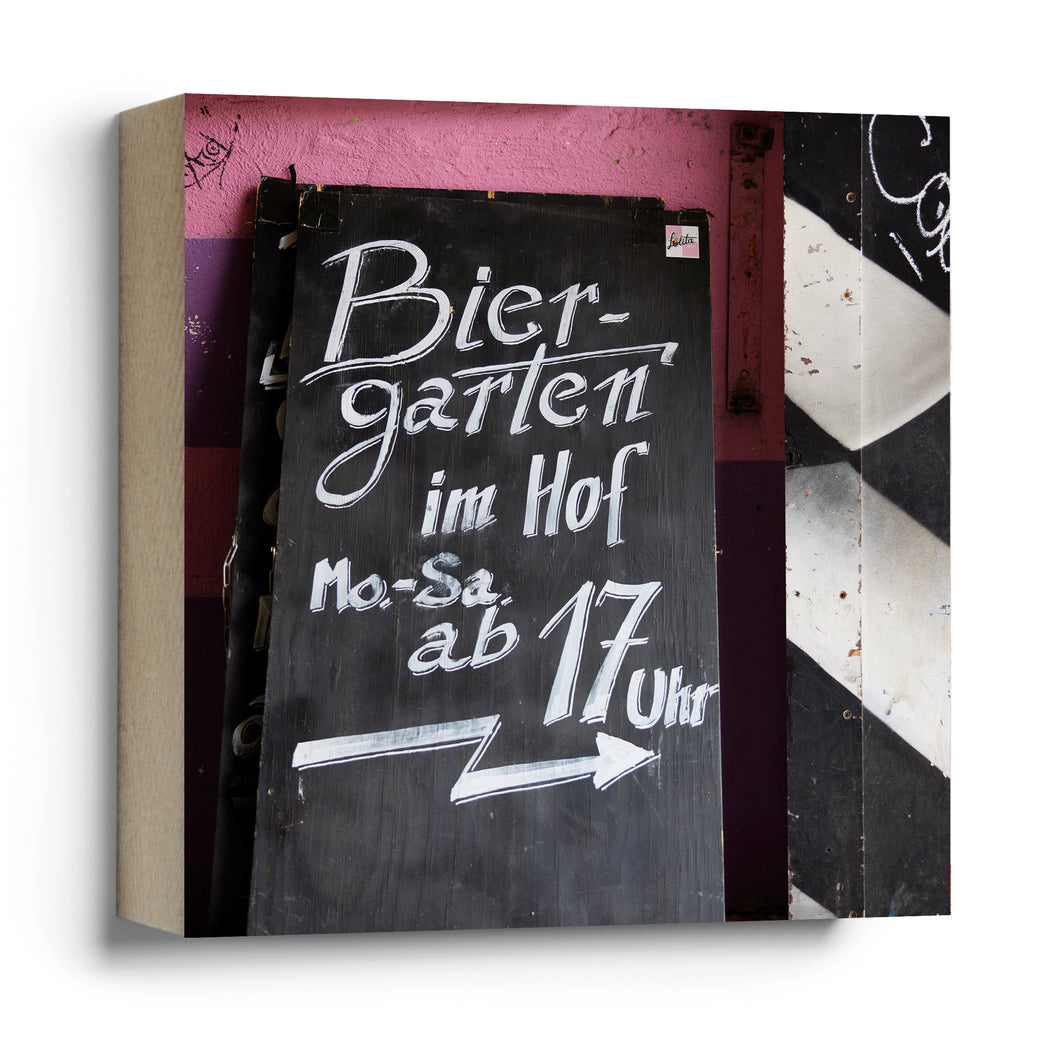 lolita
Bier-
garten
im Hof
Mo.-Sa.
ab 17 Uhr